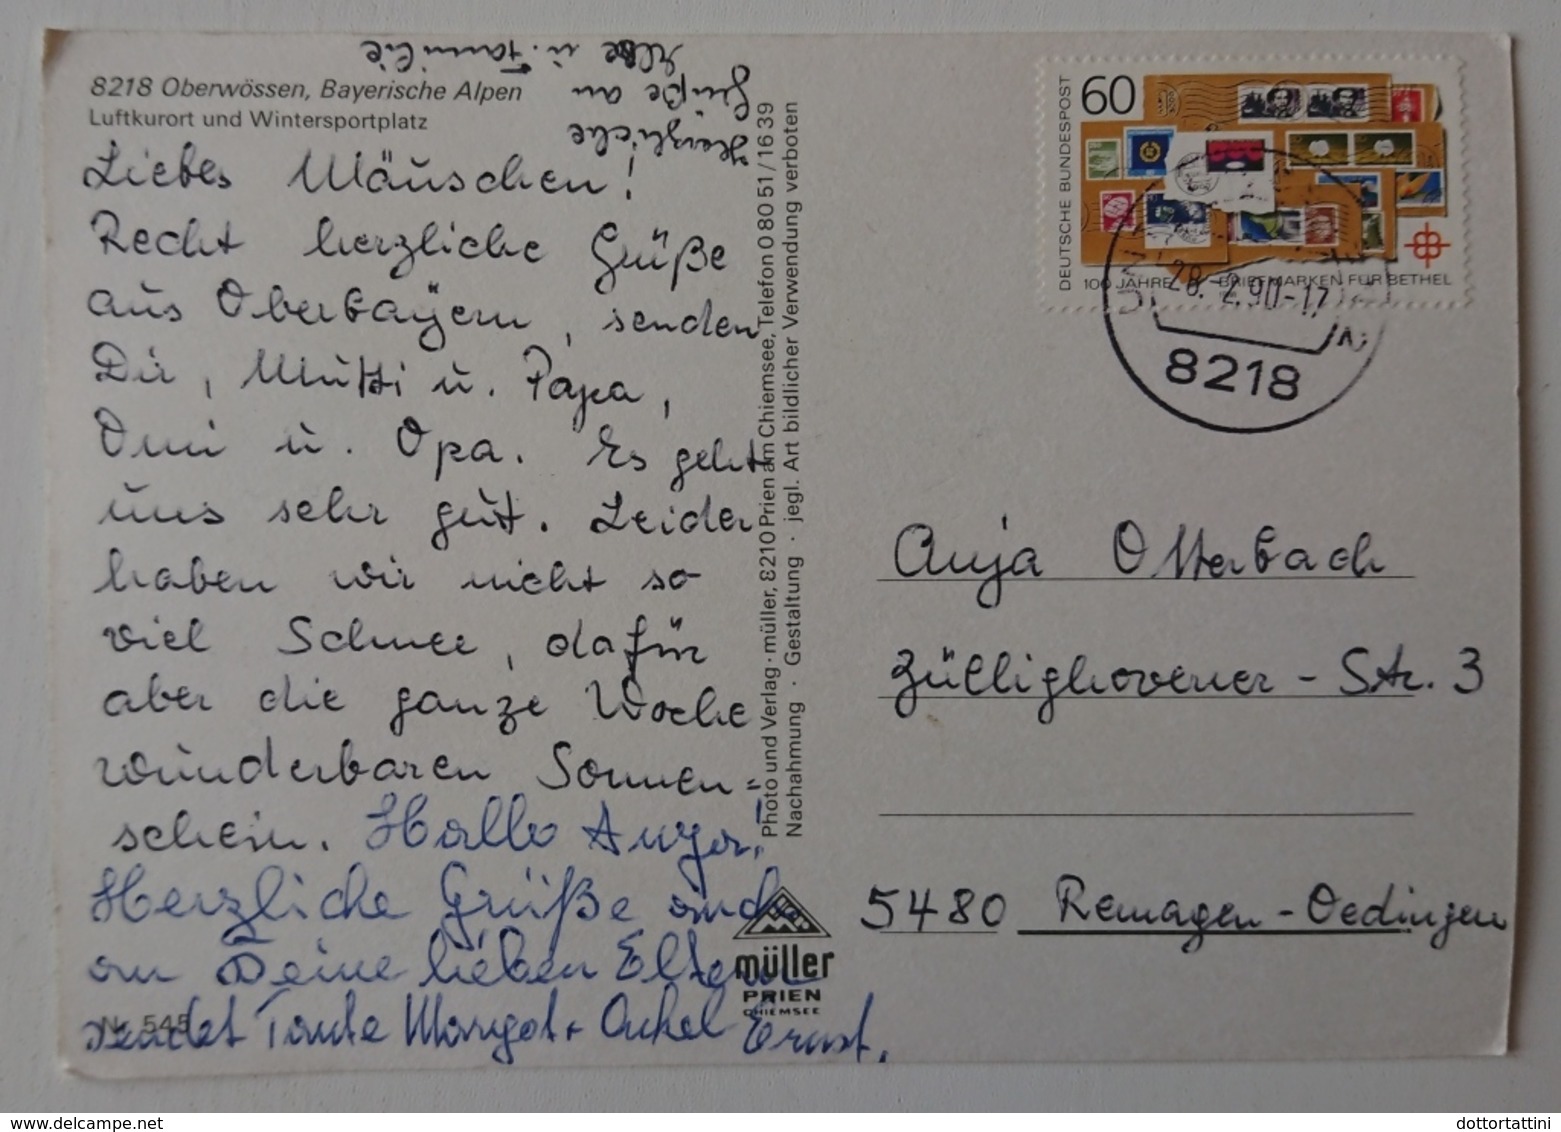 8218 Oberwössen, Bayerische Alpen
Luftkurort und Wintersportplatz
Liebes Mäuschen!
Recht herzliche Grüße
aus Oberbayern, senden
Dir, Mutti u. Papa,
Omi u. Opa. Es geht
uns sehr gut. Leider
haben wir nicht so
viel Schnee, dafür
aber die ganze Woche
wunderbaren Sonnen=
schein. Hallo Anja!
Herzliche Grüße auch
an Deine lieben Eltern
sendet Tante Margot + Onkel Ernst.
Nr. 545
Herzliche
Grüße an
u. Familie
Photo und Verlag · müller, 8210 Prien am Chiemsee, Telefon 0 80 51/16 39
Nachahmung · Gestaltung · jegl. Art bildlicher Verwendung verboten
müller
PRIEN
CHIEMSEE
60
DEUTSCHE BUNDESPOST
100 JAHRE BRIEFMARKEN FÜR BETHEL
28.-2.90-17
8218
Anja Otterbach
Züllighovener-Str. 3
5480 Remagen-Oedingen
dottortattini